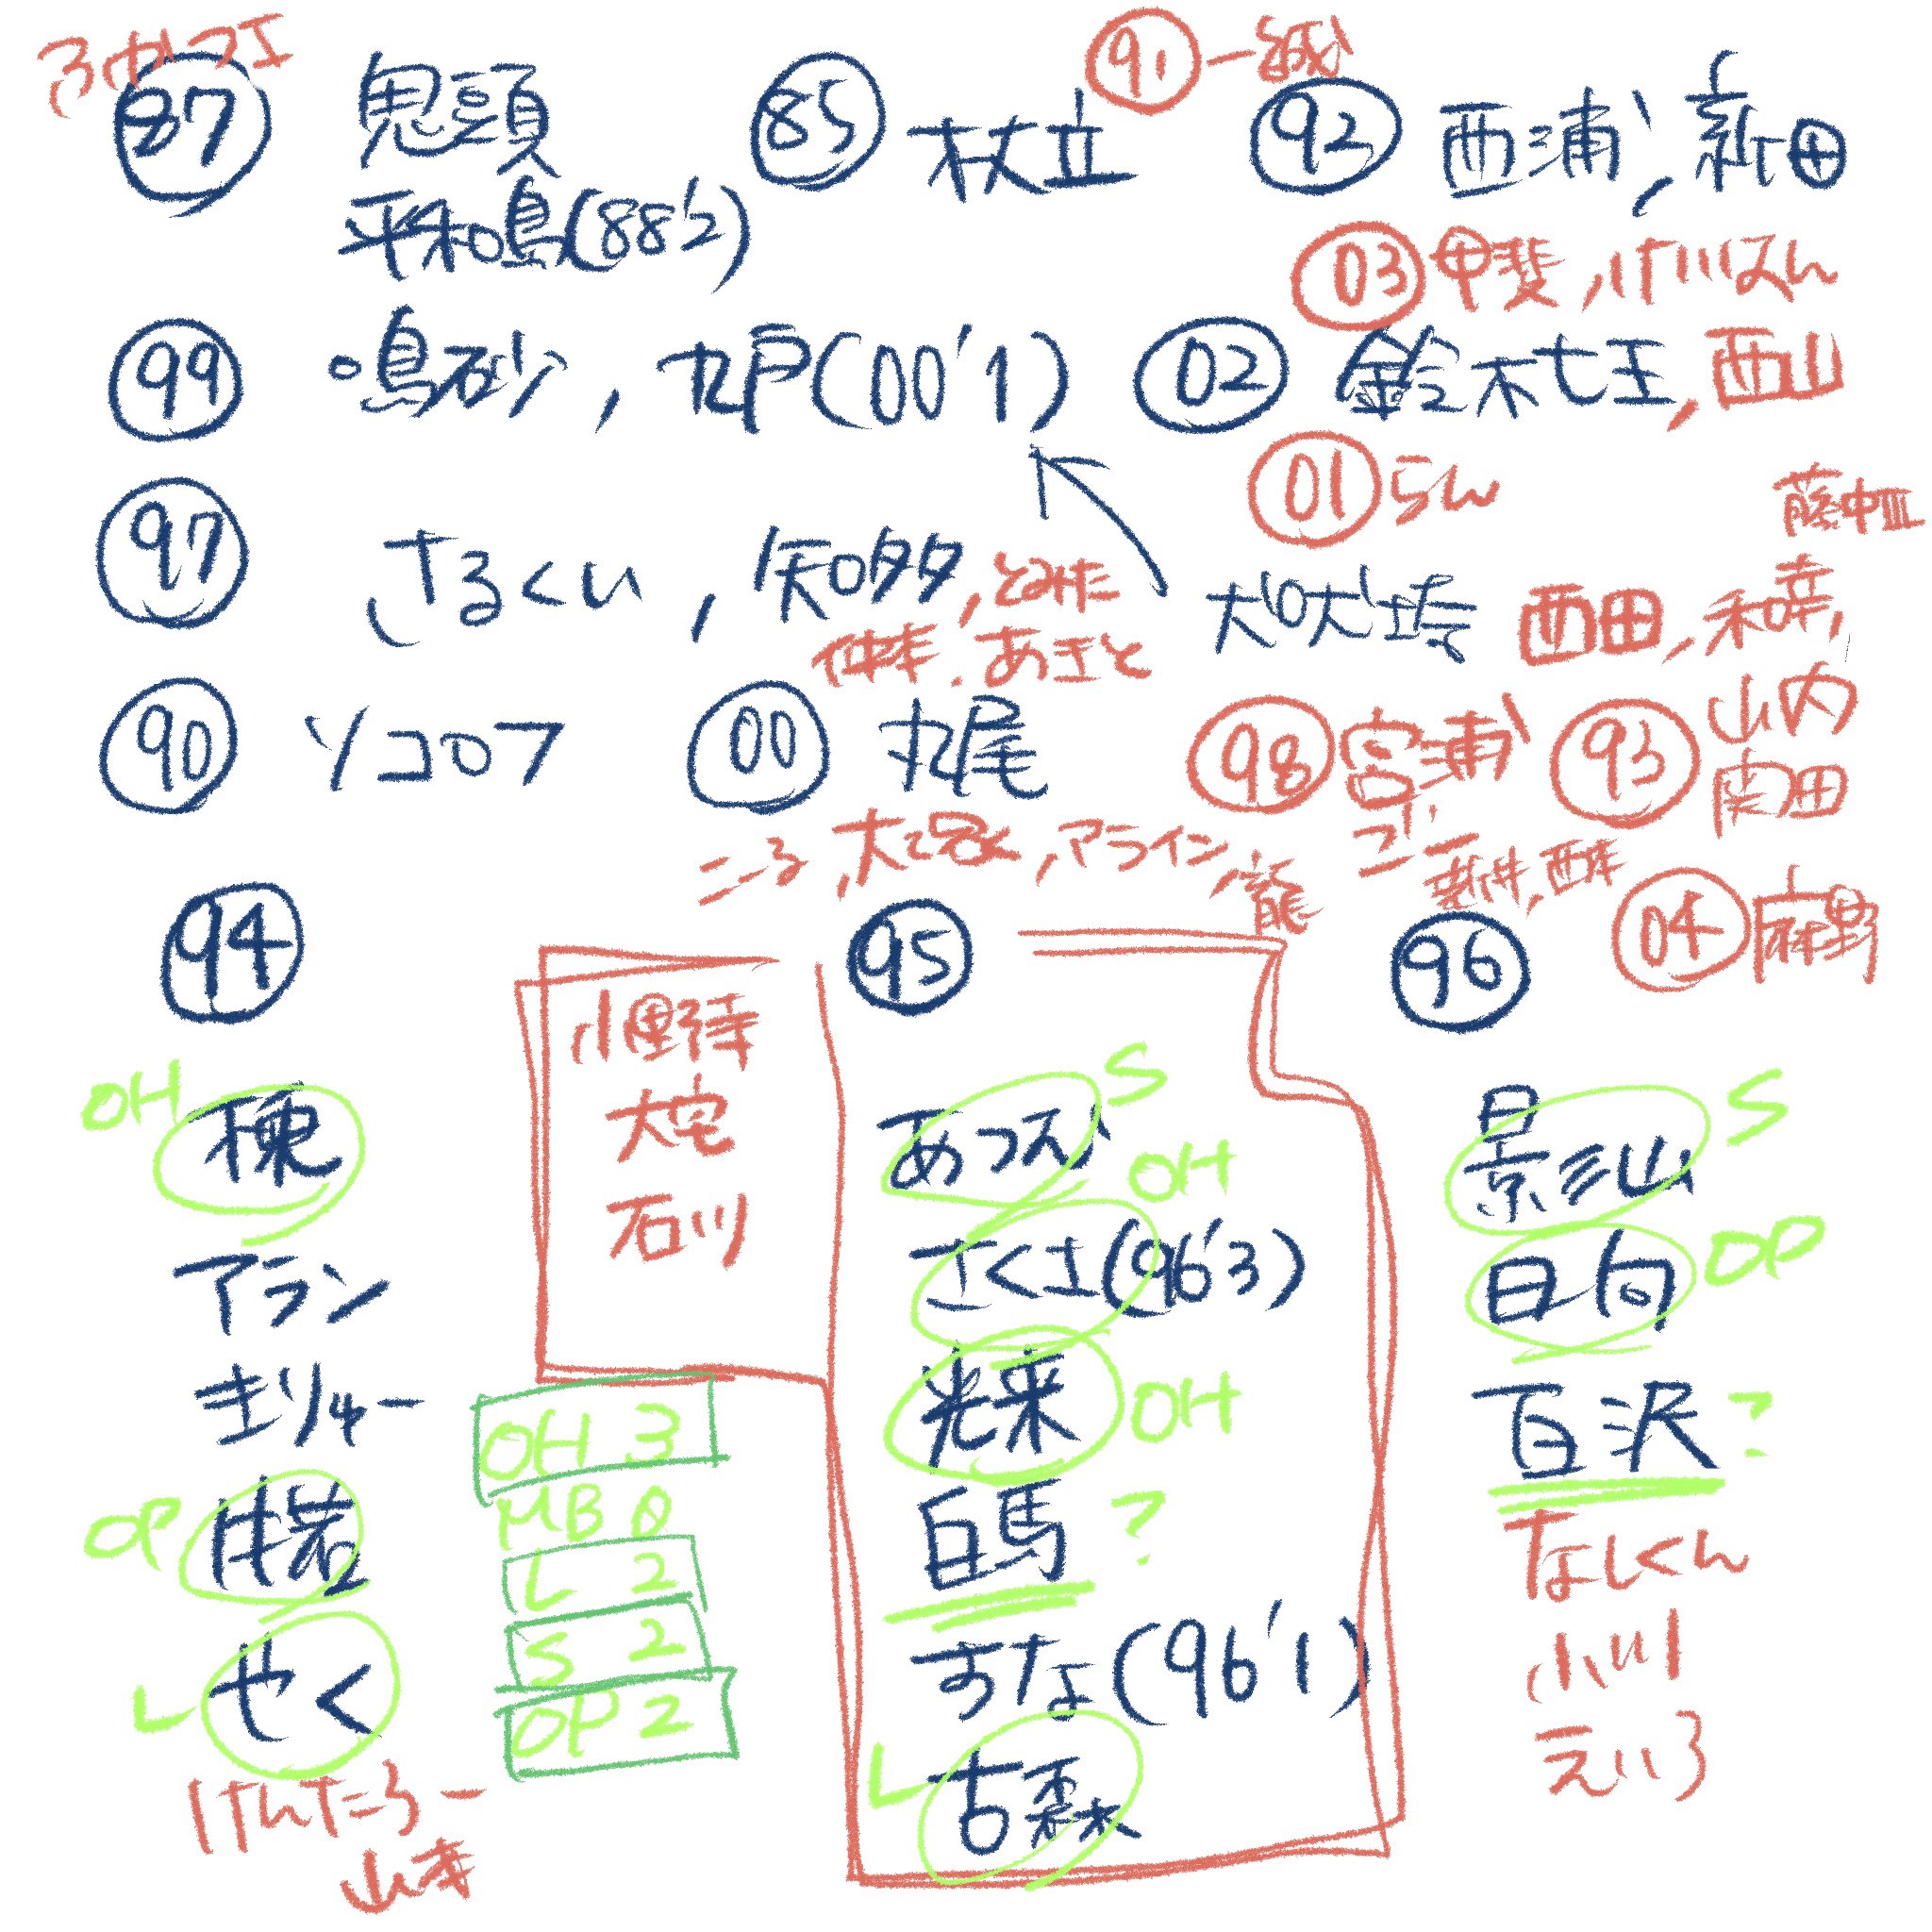 ふかつエ
87 鬼頭
平和島(88'2)
85 杖立
91 一誠
92 西浦, 新田
03 甲斐, けいすけ
99 鳴砂, 九戸(00'1)
02 鈴木七王, 西山
01 らん
97 さるくい, 知多, とみた
仲本, あきと
犬吠埼
藤中Ⅲ
西田, 和幸,
90 ソコロフ
00 丸尾
98 宮浦
ゴー
93 山内
関田
ころ, 大塚, アライン, 龍
新井, 西本
04 麻野
94
OH 棟
アラン
きりゅー
OP 臼若
L やく
けんたろー
山本
小野寺
大宅
石川
OH 3
MB 0
L 2
S 2
OP 2
95
あつむ S
さくさ(96'3) OH
光来 OH
白馬 ?
すな(96'1)
L 古森
96
影山 S
日向 OP
百沢 ?
なしくん
小川
えいろ